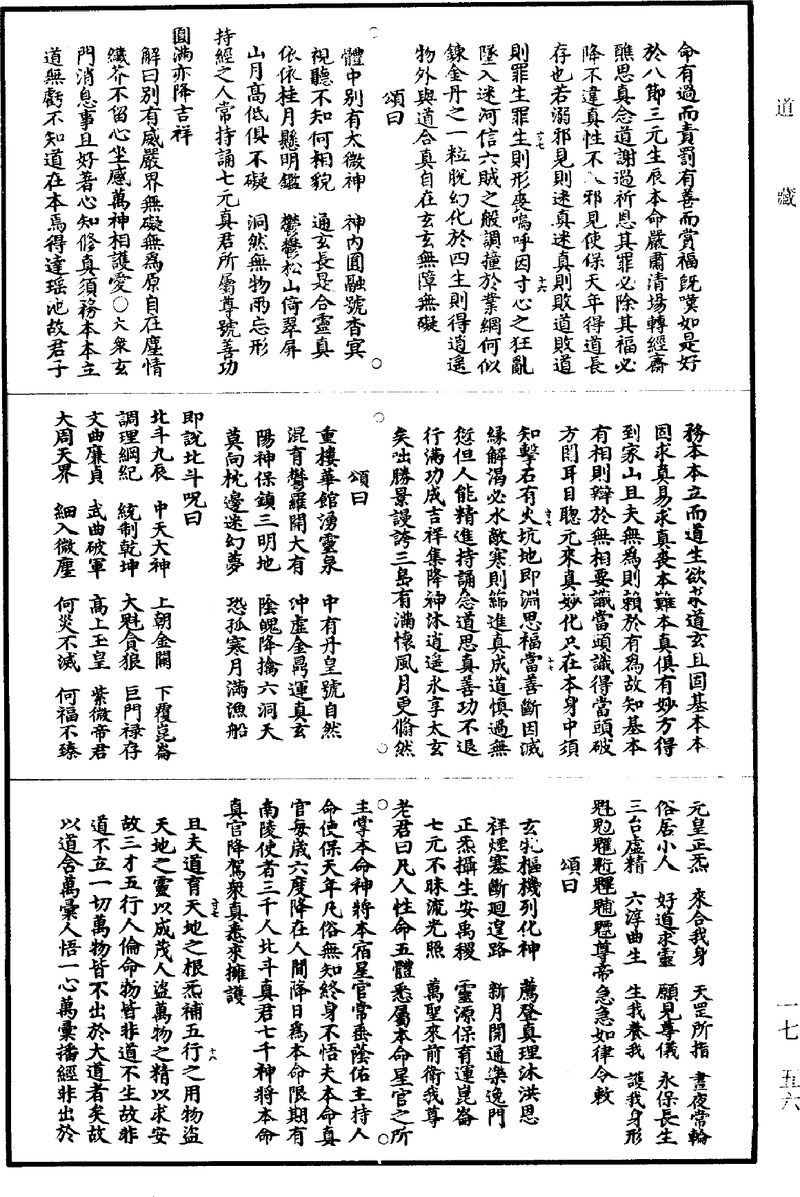 道藏
命有過而責罰有善而賞福旣嘆如是好
於八節三元生辰本命嚴肅清場轉經齋
醮思真念道謝過祈恩其罪必除其福必
降不違真性不入邪見使保天年得道長
存也若溺邪見則迷真迷真則敗道敗道
則罪生罪生則形喪嗚呼因寸心之狂亂
墜入迷河信六賊之般調撞於業網何似
錬金丹之一粒脫幻化於四生則得逍遥
物外與道合真自在玄玄無障無礙
頌曰
體中別有太微神 神內圓融號杳冥
視聽不知何相貌 通玄長是合靈真
依依桂月懸明鑑 鬱鬱松山倚翠屏
山月高低俱不礙 洞然無物兩忘形
持經之人常持誦七元真君所屬尊號善功
圓滿亦降吉祥
解曰別有威嚴界無礙無為原自在塵情
纖芥不留心坐感萬神相護愛○六衆玄
門消息事且好著心知修真須務本本立
道無虧不知道在本焉得達瑶池故君子
務本本立而道生欲求道玄且固基本本
固求真易求真喪本難本真俱有妙方得
到家山且夫無為則賴於有為故知基本
有相則辯於無相要識當頭識得當頭破
方閉耳目聦元來真妙化只在本身中須
知擊石有火坑地即淵思福當善斷因滅
緣解渴必水敵寒則篩進真成道慎過無
愆但人能精進持誦念道思真善功不退
行滿功成吉祥集降神沐逍遥永享太玄
矣咄勝景謾誇三島有滿懷風月更翛然
頌曰
重樓華館湧靈泉 中有丹皇號自然
混育鬱羅開大有 沖虛金鼎運真玄
陽神保鎮三明地 陰魄降擒六洞天
莫向枕邊迷幻夢 恐孤寒月滿漁船
即說北斗呪曰
北斗九辰 中天大神 上朝金闕 下覆崑崙
調理綱紀 統制乾坤 大魁貪狼 巨門禄存
文曲廉貞 武曲破軍 高上玉皇 紫微帝君
大周天界 細入微塵 何災不滅 何福不臻
元皇正炁 來合我身 天罡所指 晝夜常輪
俗居小人 好道求靈 願見尊儀 永保長生
三台虛精 六淳曲生 生我養我 護我身形
尊帝急急如律令敕
頌曰
玄牝樞機列化神 薦登真理沐洪恩
祥煙塞斷廻遑路 新月開通樂逸門
正炁攝生安禹稷 靈源保育運崑崙
七元不昧流光照 萬聖來前衛我尊
老君曰凡人性命五體悉屬本命星官之所
主掌本命神將本宿星官常垂蔭佑主持人
命使保天年凡俗無知終身不悟夫本命真
官每歲六度降在人間降日為本命限期有
南陵使者三千人北斗真君七千神將本命
真官降駕衆真悉來擁護
且夫道育天地之根炁補五行之用物盜
天地之靈以成茂人盜萬物之精以求安
故三才五行人倫命物皆非道不生故非
道不立一切萬物皆不出於大道者矣故
以道含萬彙人悟一心萬彙播經非出於
一七 五六